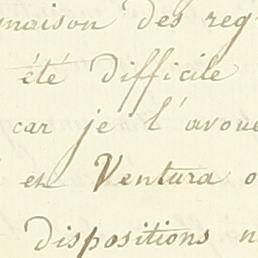 maison des reg
été difficile
car je l'avoue
en Ventura o
dispositions n